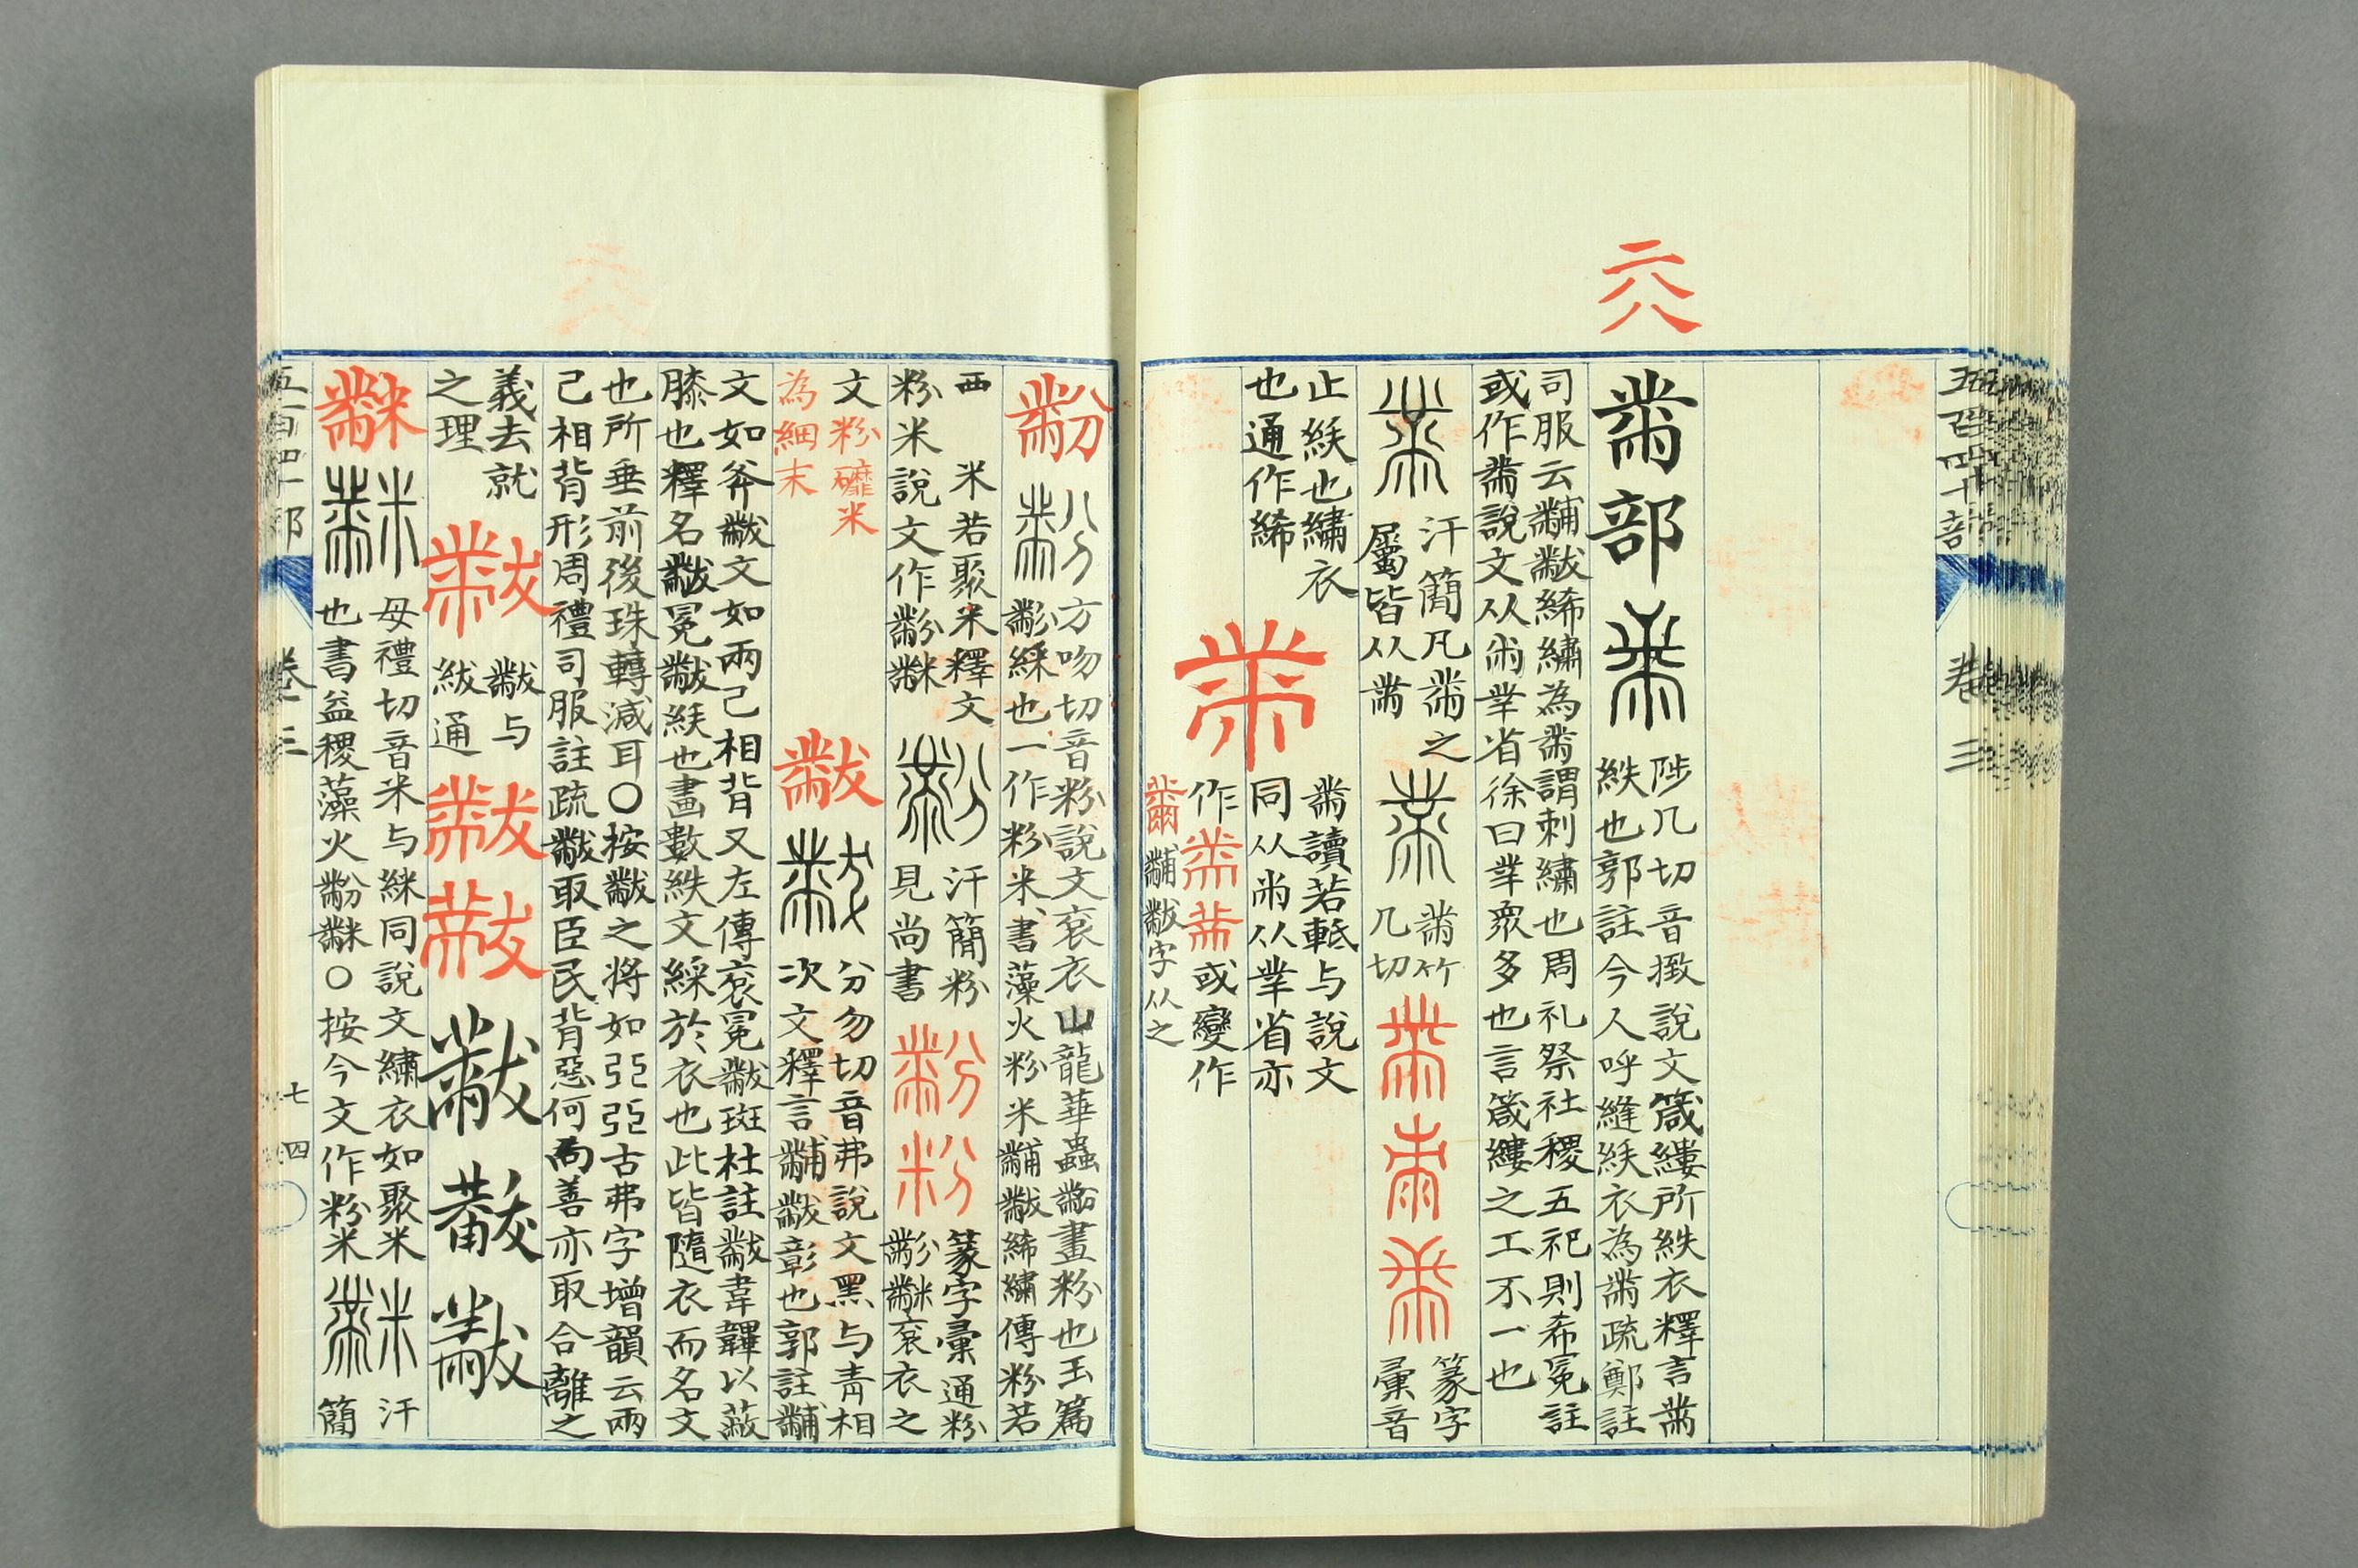 二八
五百四十部 卷三
黹部
陟几切音㨖說文箴縷所紩衣釋言黹
紩也郭註今人呼縫紩衣為黹疏鄭註
司服云黼黻絺繡為黹謂刺繡也周礼祭社稷五祀則希冕註
或作黹說文从㡀丵省徐曰丵眾多也言箴縷之工不一也
汗簡凡黹之
屬皆从黹
黹竹
几切
篆字
彙音
止紩也繡衣
也通作絺
黹讀若軧与說文
同从㡀从丵省亦
作
或變作
黼黻字从之
黺
方吻切音粉說文袞衣山龍華蟲黺畫粉也玉篇
黺綵也一作粉米書藻火粉米黼黻絺繡傳粉若
西米若聚米釋文
粉米說文作黺䋛
汗簡粉
見尚書
篆字彙通粉
黺䋛袞衣之
文粉礳米
為細末
黻
分勿切音弗說文黑与青相
次文釋言黼黻彰也郭註黼
文如斧黻文如兩己相背又左傳袞冕黻斑杜註黻韋韠以蔽
膝也釋名黻冕黻紩也畫數紩文綵於衣也此皆隨衣而名文
也所垂前後珠轉減耳〇按黻之将如亞亞古弗字增韻云兩
己相背形周禮司服註疏黻取臣民背惡何善亦取合離之
義去就
之理
黻与
紱通
母禮切音米与絑同說文繡衣如聚米
也書益稷藻火黺〇按今文作粉米
汗
簡
五百四十部 卷三 七四